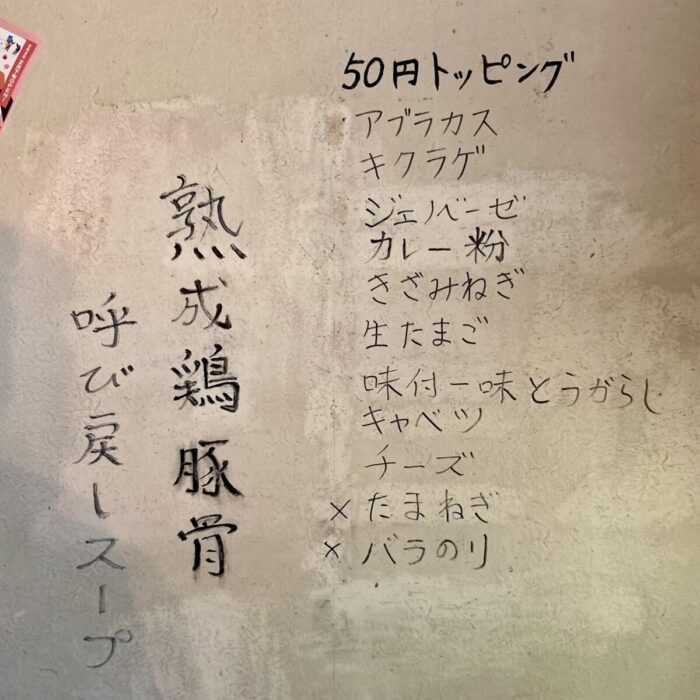 50円トッピング
アブラカス
キクラゲ
ジェノベーゼ
カレー粉
きざみねぎ
生たまご
味付一味とうがらし
キャベツ
チーズ
×たまねぎ
×バラのり
熟成鶏豚骨
呼び戻しスープ